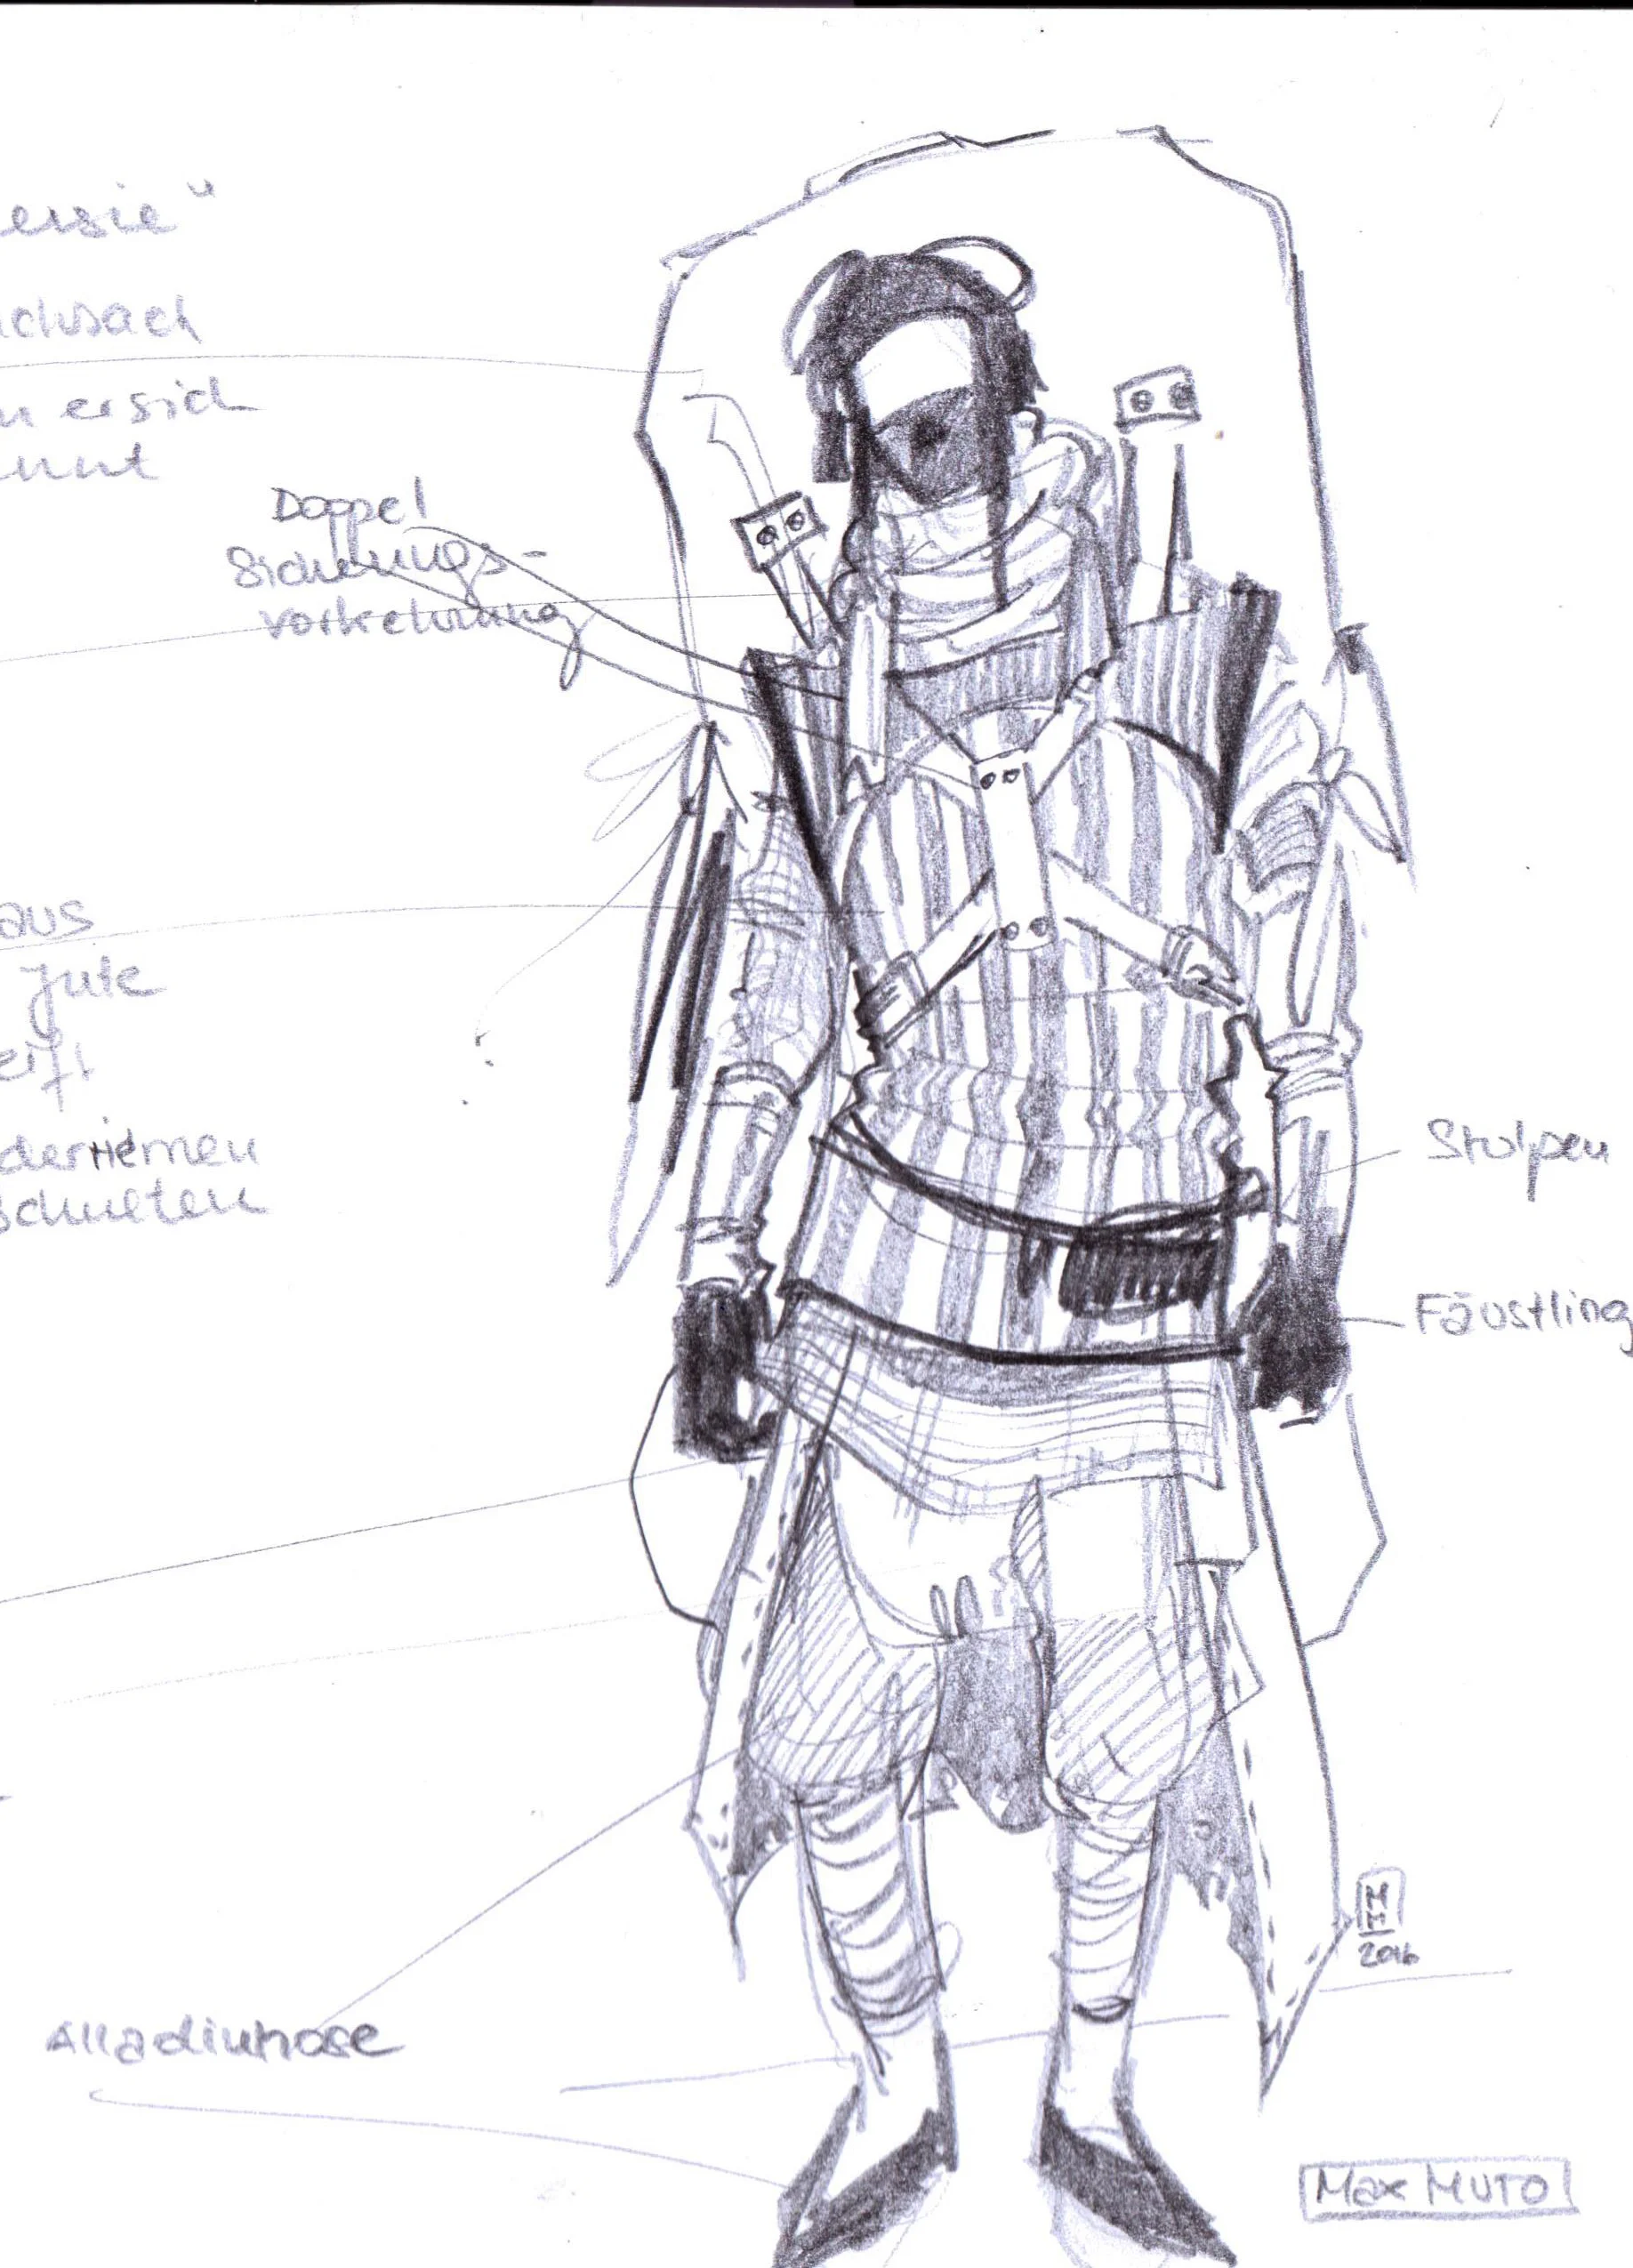 ersie"
n ersich
Doppel
Sicherungs-
vorkehrung
aus
Jute
eift
derriemen
schnelten
Stulpen
Fäustling
MM
2016
Alladinhose
Max MUTO